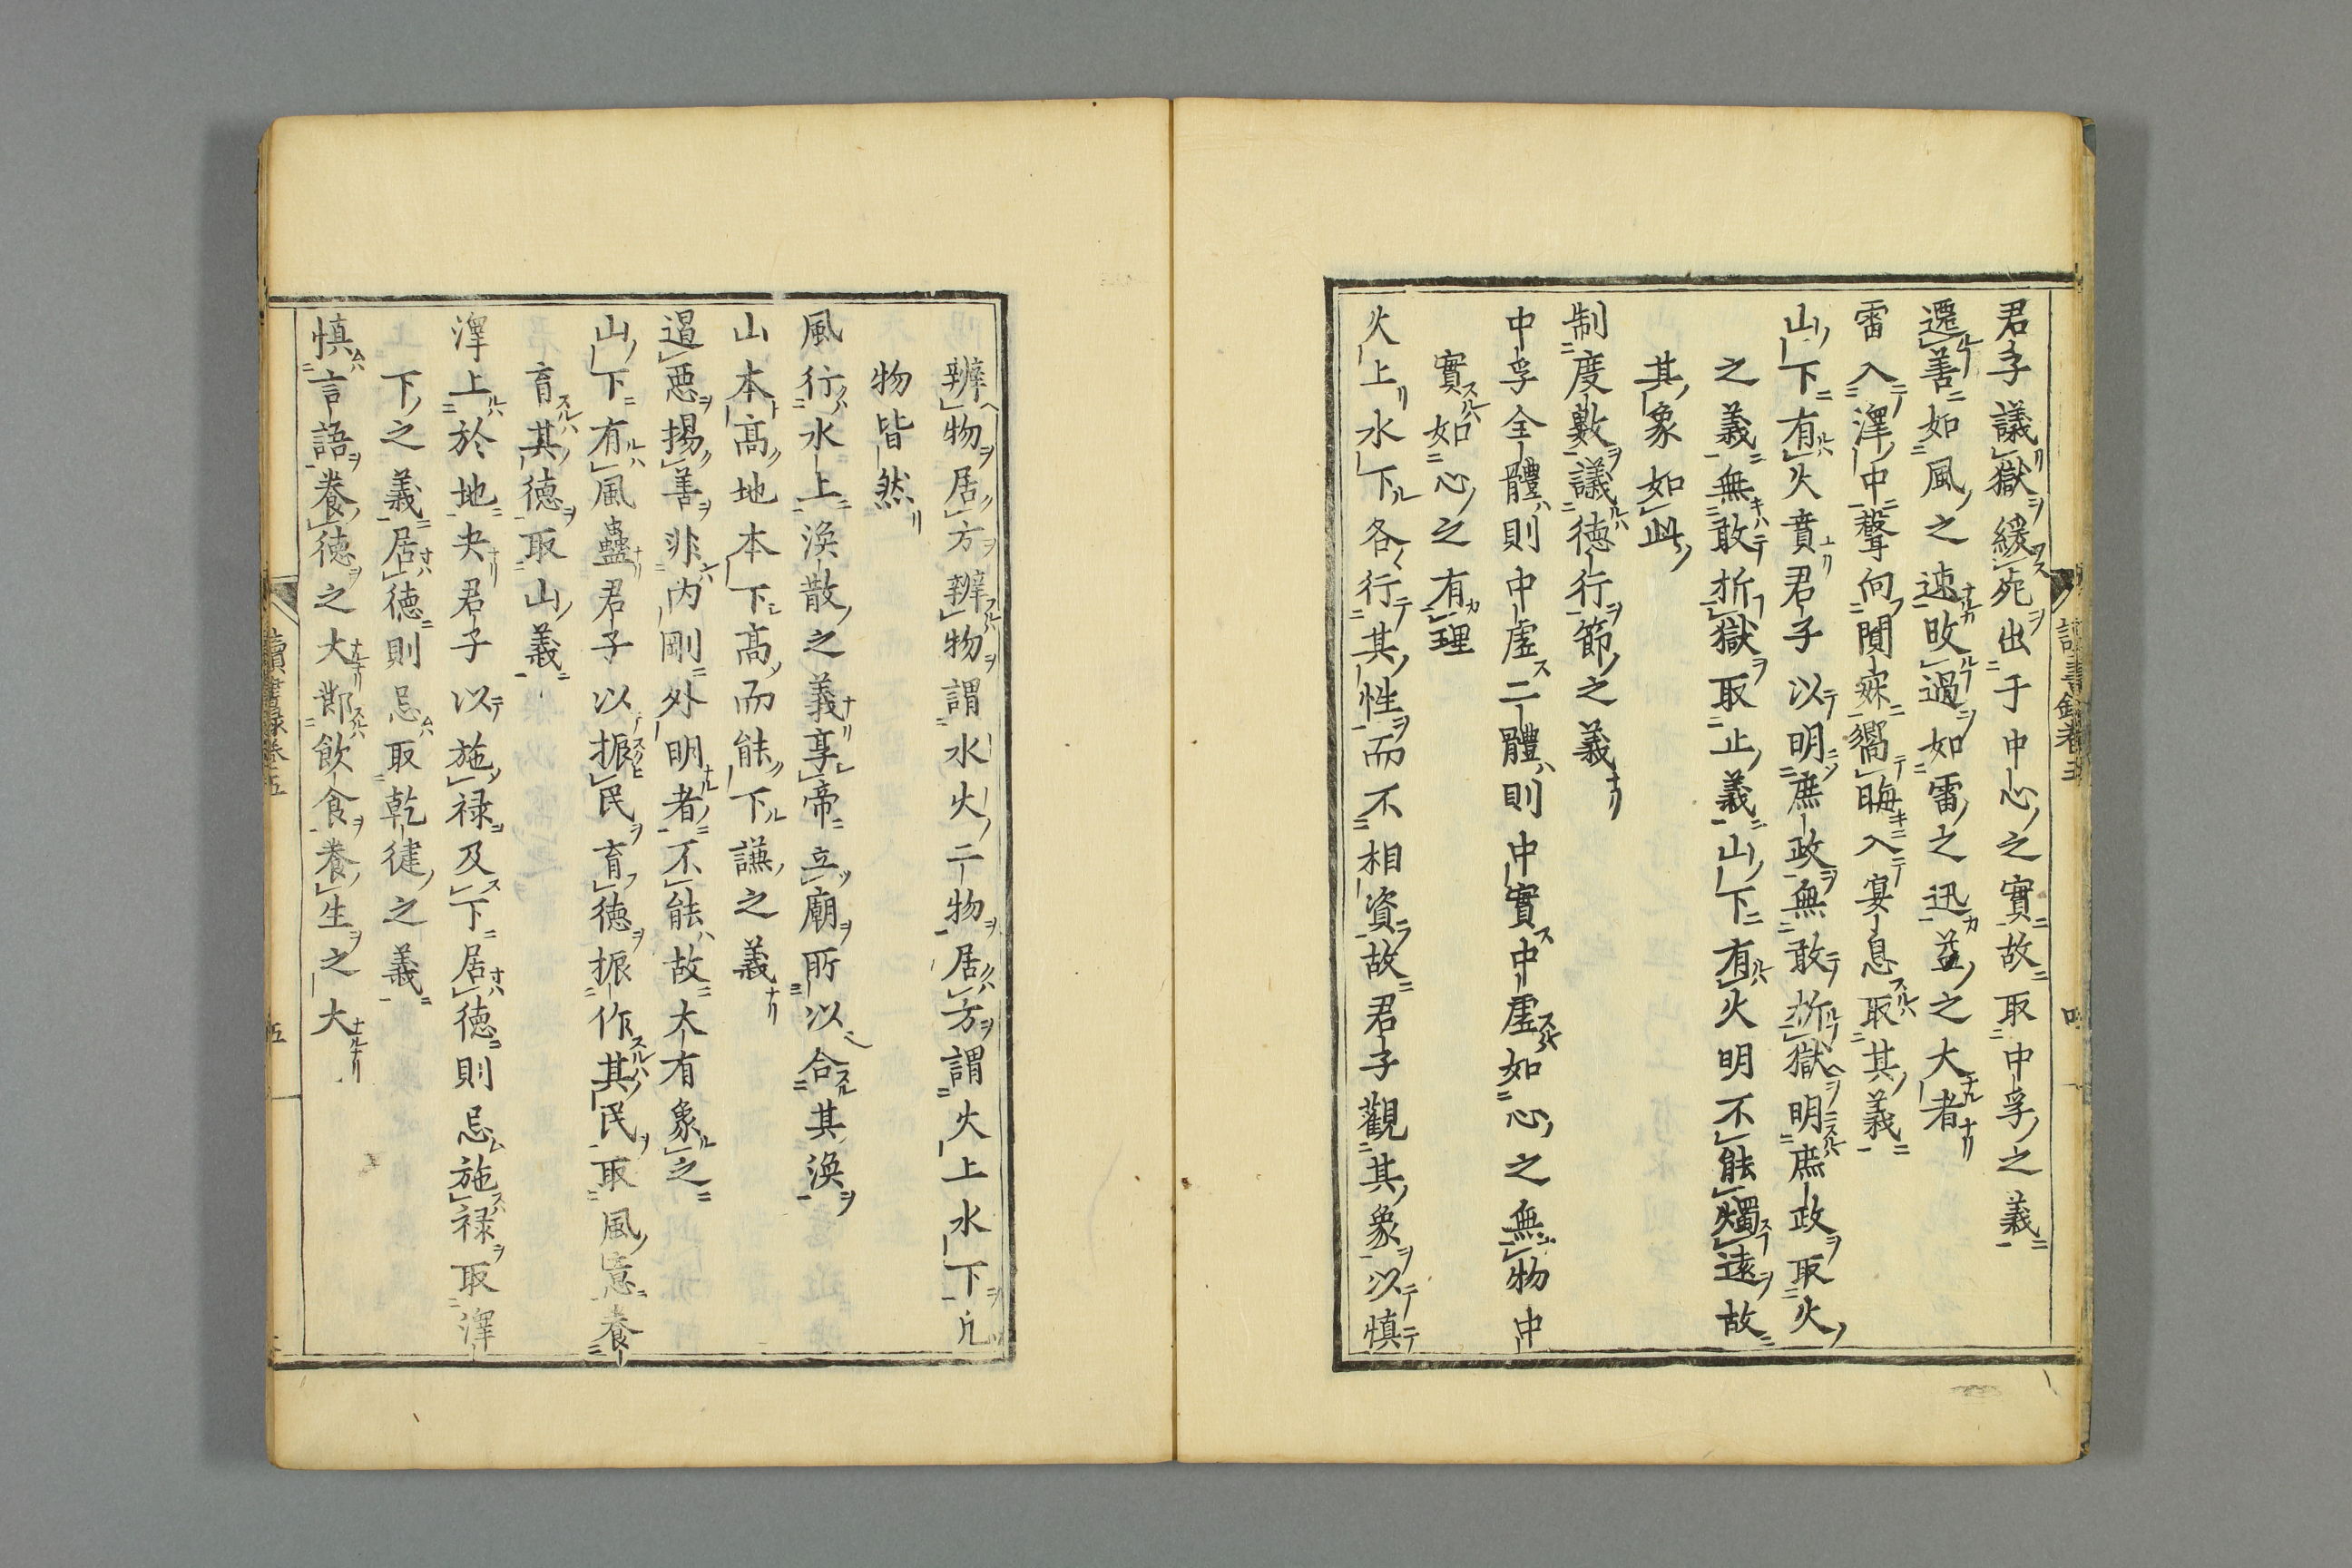 君子議獄緩死出于中心之實故取中孚之義
遷善如風之速改過如雷之迅益之大者
雷入澤中聲向闃寂嚮晦入宴息取其義
山下有火賁君子以明庶政無敢折獄明庶政取火
之義無敢折獄取止義山下有火明不能燭遠故
其象如此
制度數議德行節之義
中孚全體則中虛二體則中實中虛如心之無物中
實如心之有理
火上水下各行其性而不相資故君子觀其象以慎
辨物居方辨物謂水火二物居方謂火上水下凡
物皆然
風行水上渙散之義享帝立廟所以合其渙
山本高地本下高而能下謙之義
遏惡揚善非內剛外明者不能故大有象之
山下有風蠱君子以振民育德振作其民取風意養
育其德取山義
澤上於地夬君子以施祿及下居德則忌施祿取澤
下之義居德則忌取乾健之義
慎言語養德之大節飲食養生之大
讀書錄卷五
五